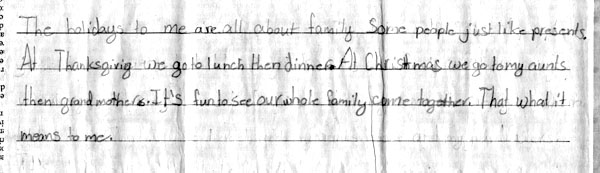 The holidays to me are all about family Some people just like presents.
At Thanksgiving we go to lunch then dinner. At Christmas we go to my aunts
then grandmothers. It's fun to see our whole family come together. That what it
means to me.